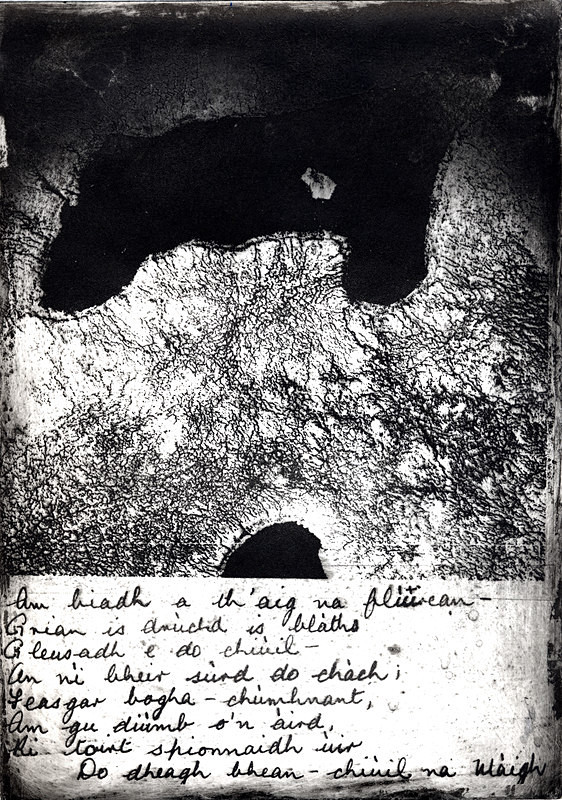 Am biadh a th'aig na flùirean –
Grian is drùchd is blàths
Gleusadh e do chiùil –
An nì bheir sùrd do chàch;
Feasgar bogha-chùmhnant,
Am gu diùmb o'n àird,
Ri toirt spionnaidh ùir
Do dheagh bhean-chiùil na Màigh